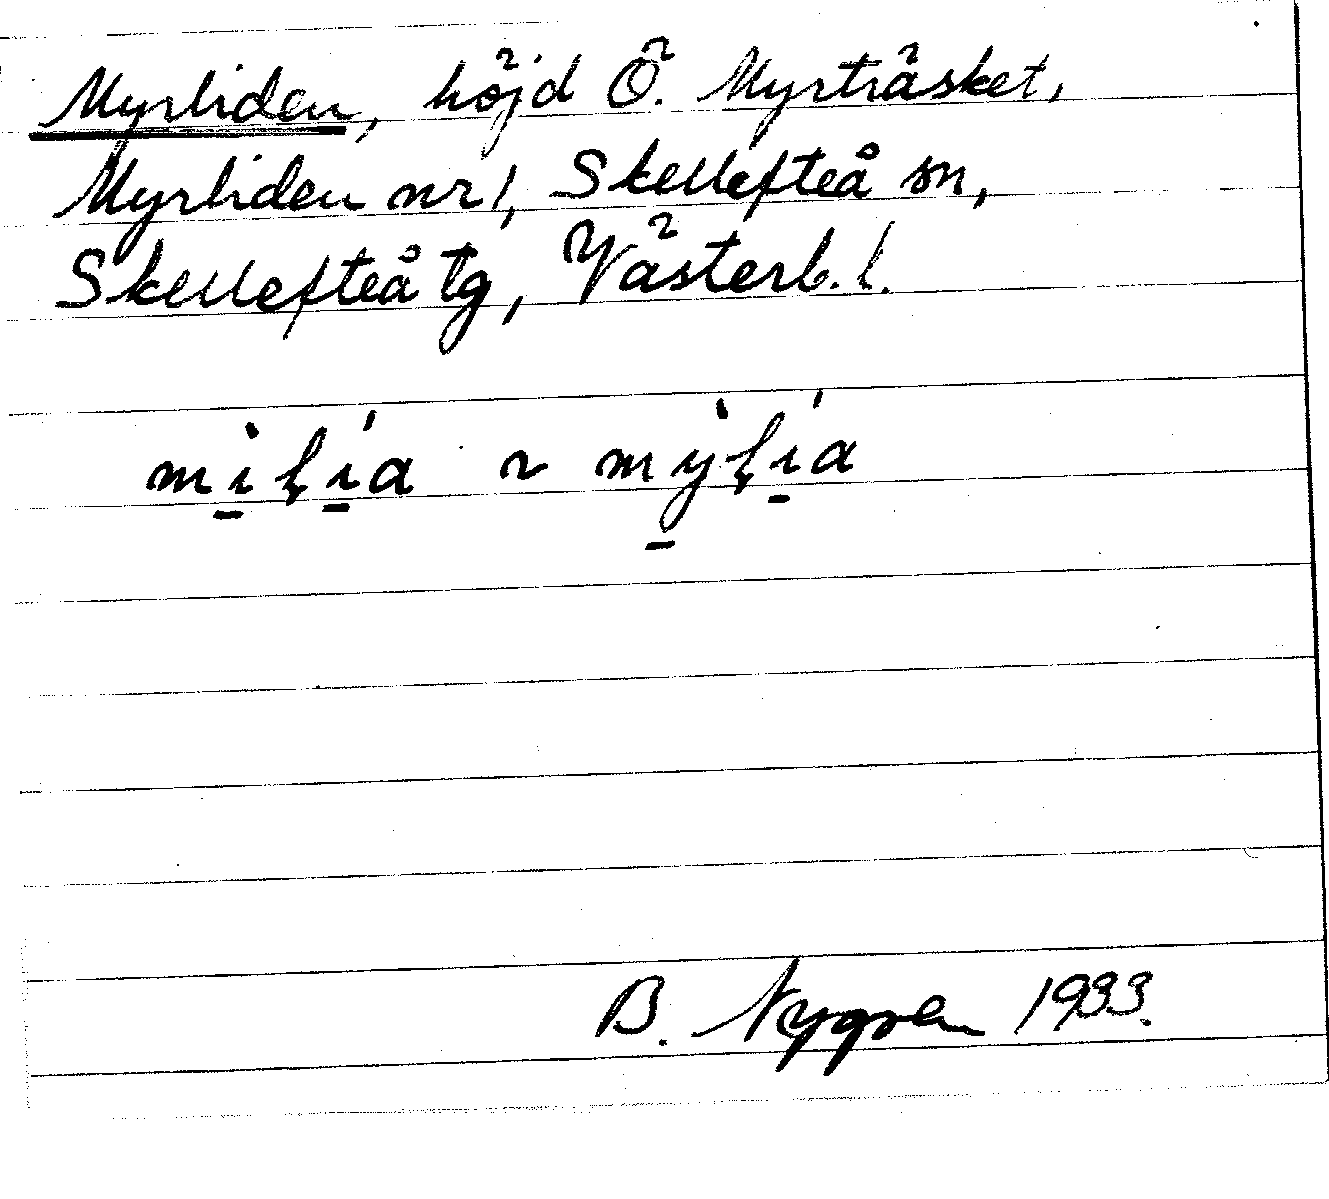 Myrliden, höjd Ö. Myrträsket,
Myrliden nr 1, Skellefteå sn,
Skellefteå tg, Västerb. l.
B. Nygren 1933.